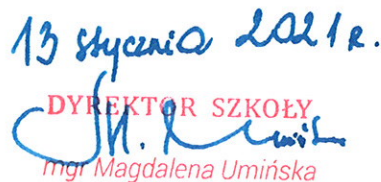 13 stycznia 2021 r.
DYREKTOR SZKOŁY
mgr Magdalena Umińska